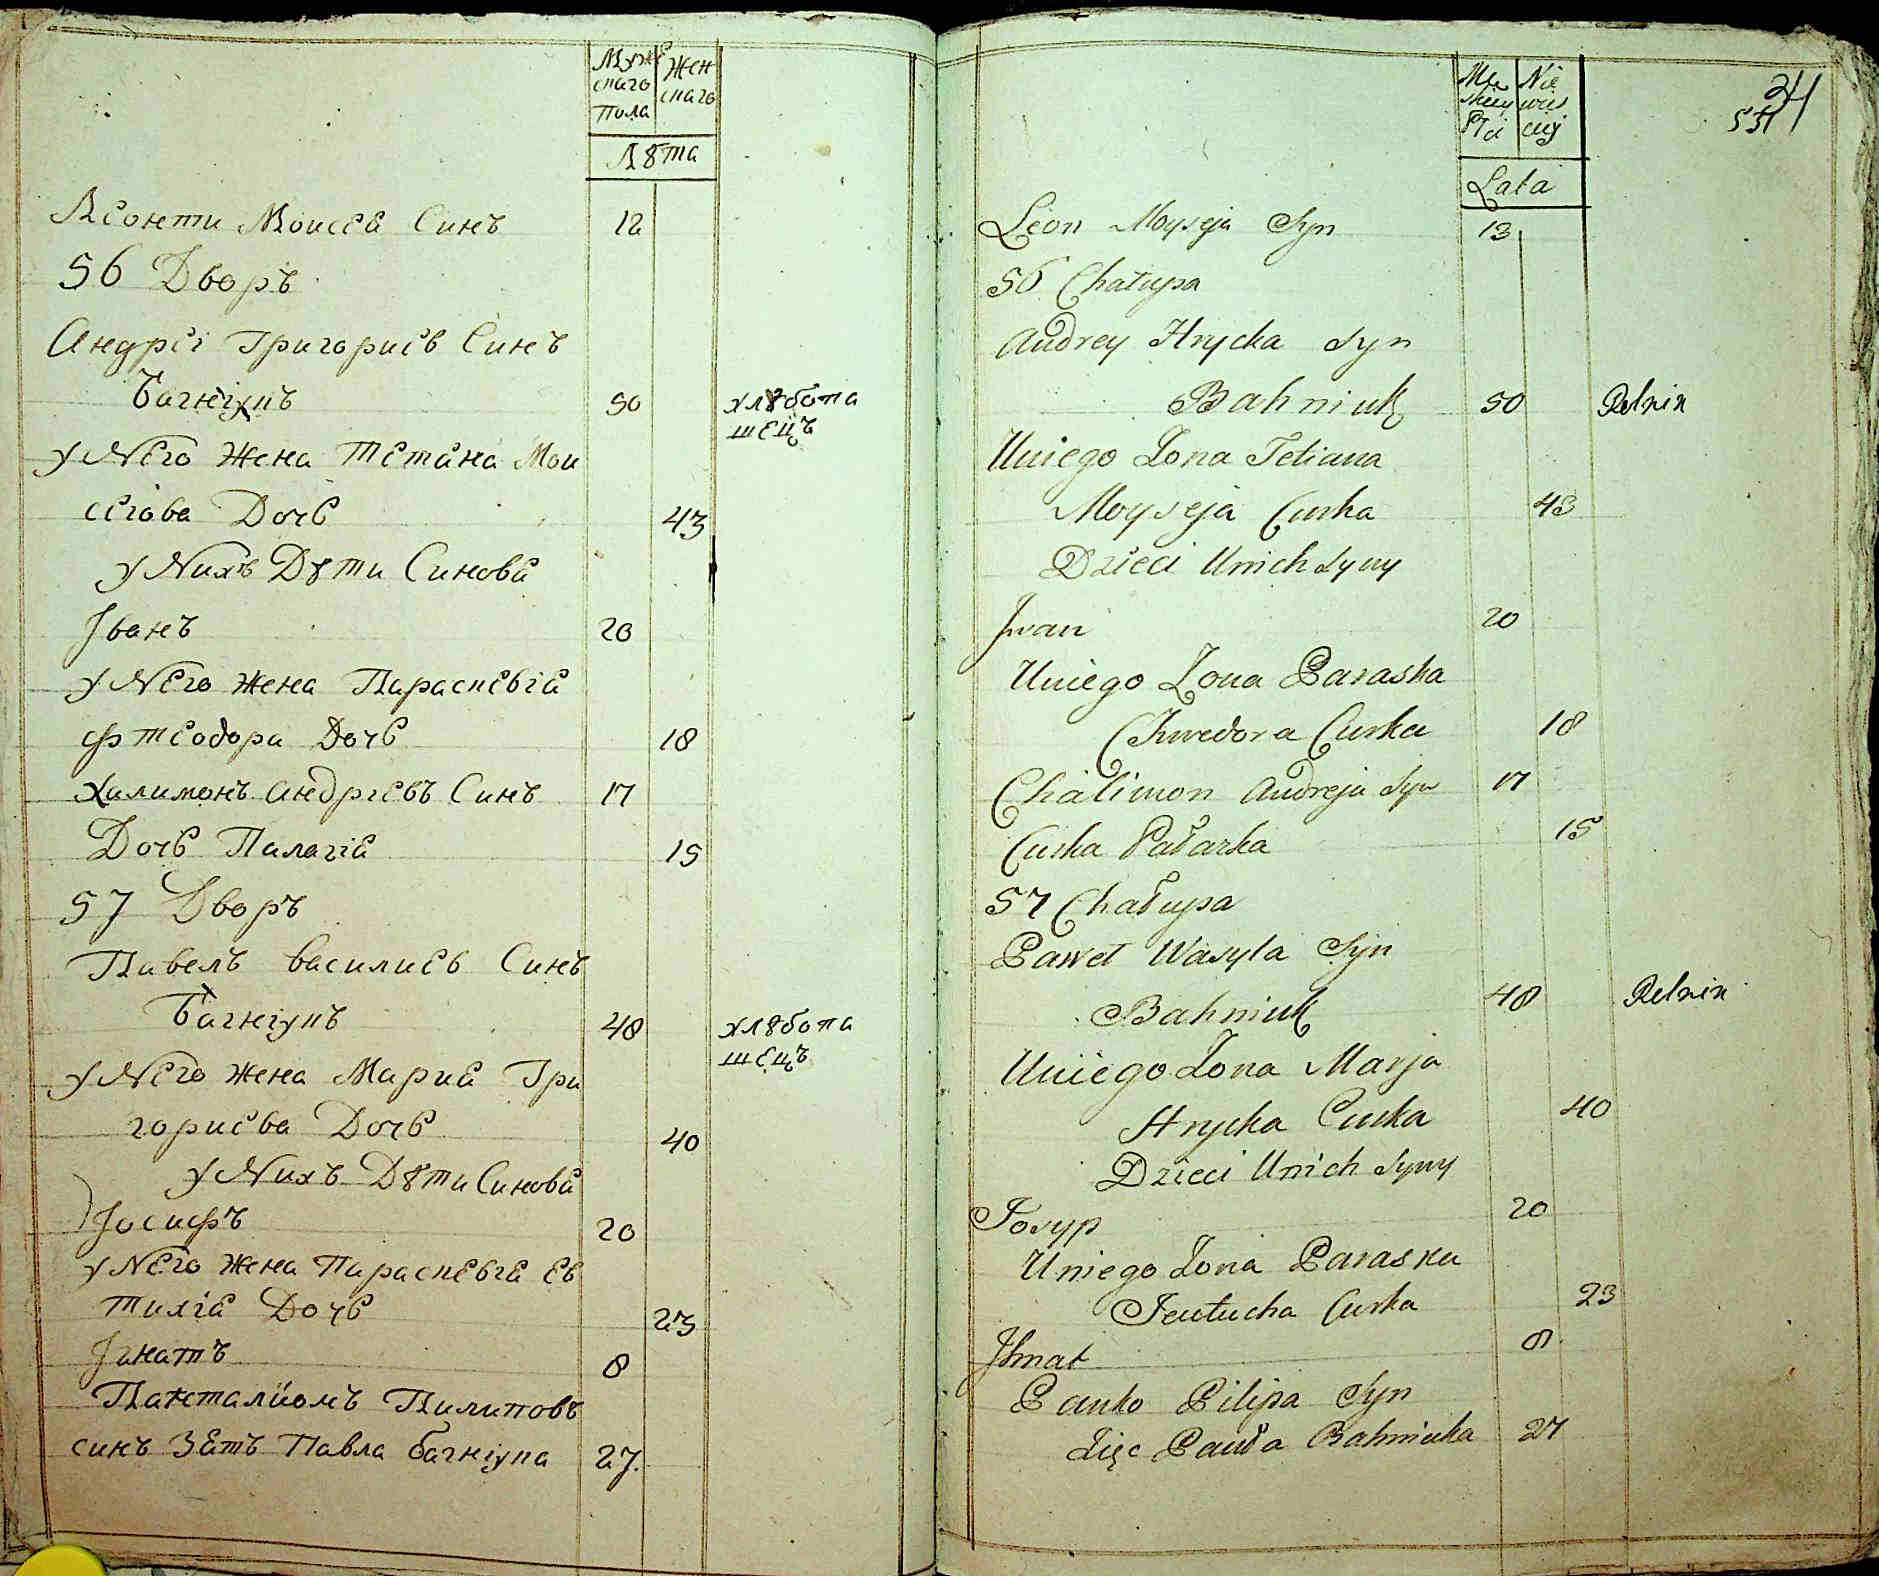 Муже
скаго
Пола
Жен
скаго
Лѣта
Леонти Моисеа Синъ 12
56 Дворъ
Андреі Григориев Синъ
Багніукъ 50 хлѣбопа
шецъ
у Него Жена Тетiана Мои
сеіова Дочь 43
у Нихъ Дѣти Синова
Іванъ 20
у Него Жена Параскевіа
Фтеодора Дочь 18
Халимонъ Андріевъ Синъ 17
Дочь Палагіа 15
57 Дворъ
Павелъ Василиев Синъ
Багніукъ 48 хлѣбопа
шецъ
у Него Жена Мариа Гри
гориева Дочь 40
у Нихъ Дѣти Синова
Іосифъ 20
у Него Жена Параскевіа Ев
тихіа Дочь 23
Ігнатъ 8
Панталіомъ Пилиповъ
синъ Зять Павла Багніука 27.
Mę
skiey
Płci
Nie
wies
ciey
Lata
24
551
Leon Moyseja Syn 13
56 Chałupa
Andrey Hrycka Syn
Bahniuk 50 Rolnik
Uniego Żona Tetiana
Moyseja Curka 43
Dzieci Unich Syny
Jwan 20
Uniego Żona Paraska
Chwedora Curka 18
Chalimon Andreja Syn 17
Curka Pałazka 15
57 Chałupa
Paweł Wasyla Syn
Bahniuk 48 Rolnik
Uniego Żona Marja
Hrycka Curka 40
Dzieci Unich Syny
Josyp 20
Uniego Żona Paraska
Jeutucha Curka 23
Jhnat 8
Panko Pilipa Syn
Zięc Pauła Bahniuka 27